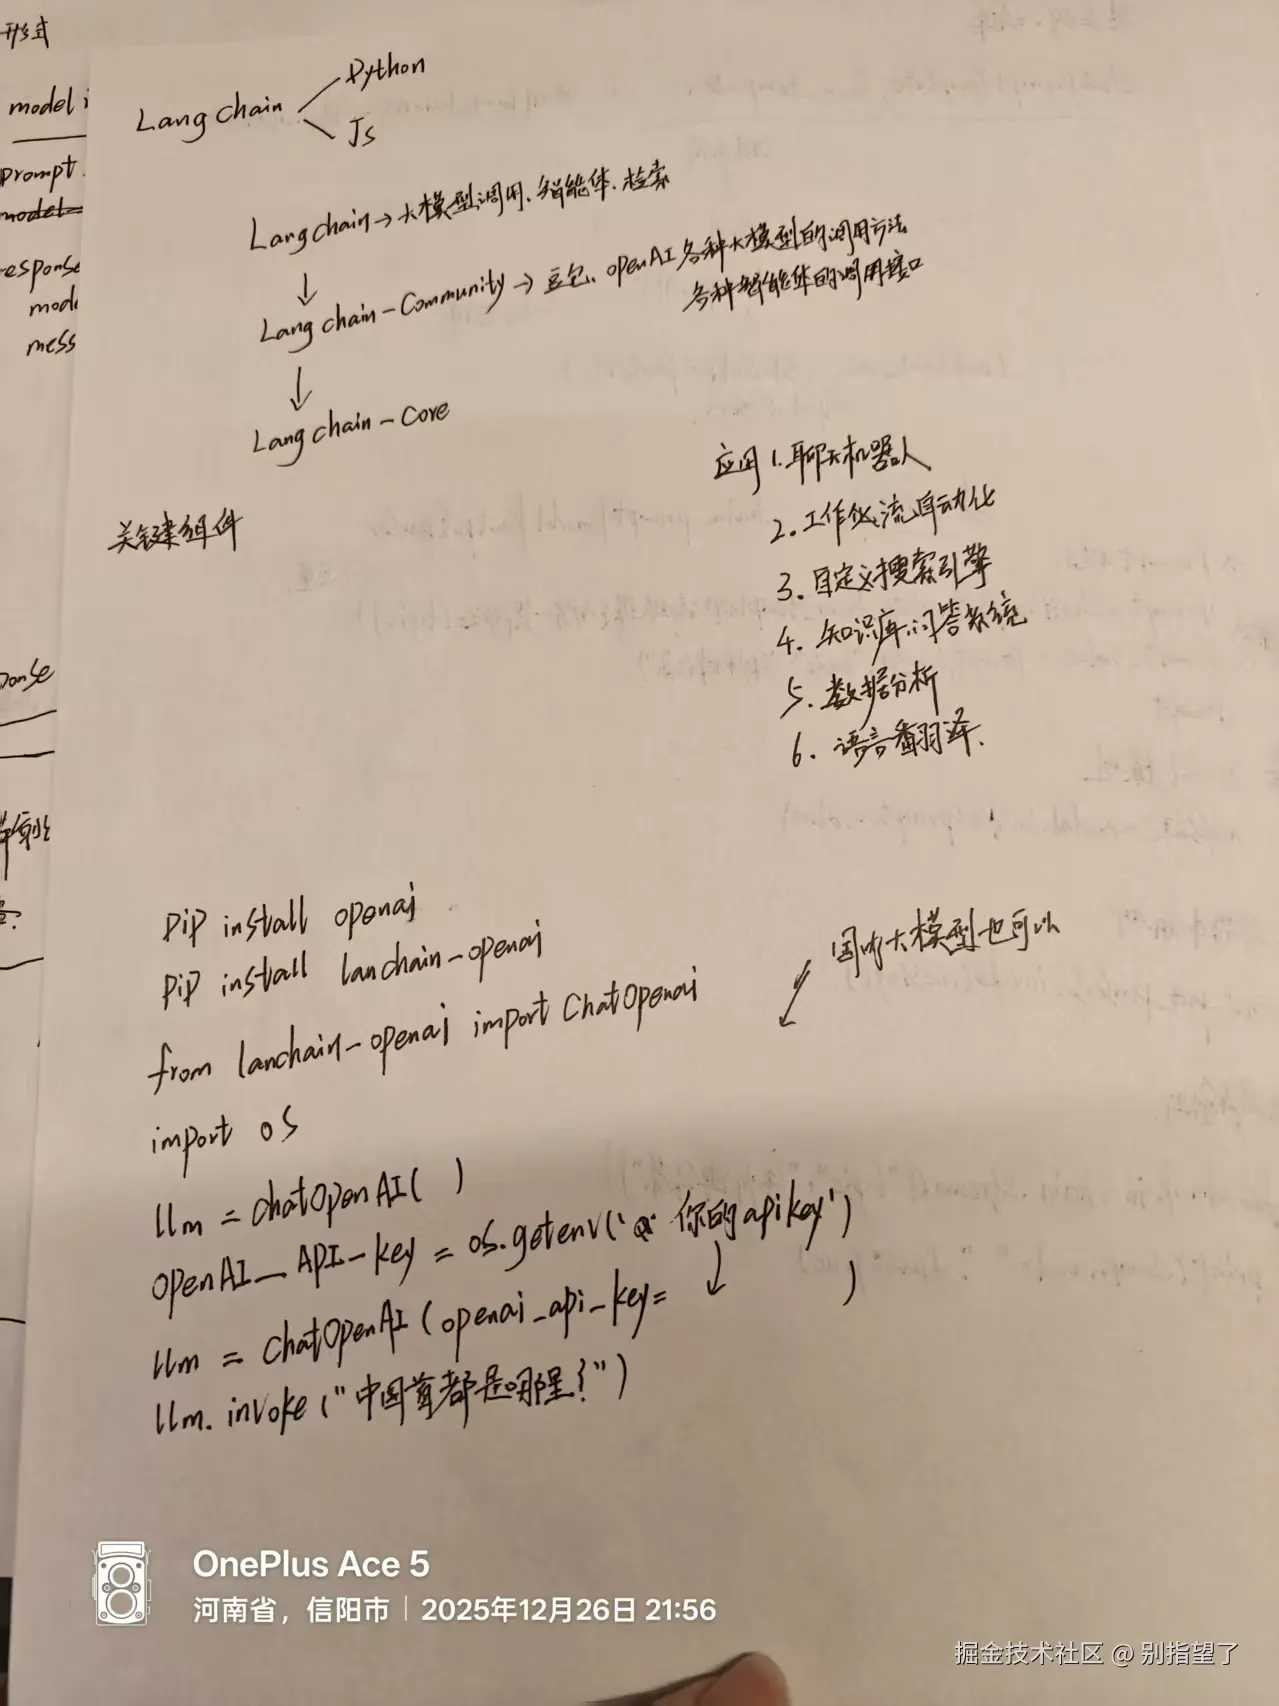 形式
model
prompt
model
esponse
mode
mess
onse
Lang chain
Python
Js
Lang chain → 大模型调用、智能体、检索
↓
Lang chain-Community → 豆包、openAI 各种大模型的调用方法
各种智能体的调用接口
↓
Lang chain-Core
关键组件
应用 1. 聊天机器人
2. 工作流自动化
3. 自定义搜索引擎
4. 知识库问答系统
5. 数据分析
6. 语言翻译.
PiP install openai
PiP install lanchain-openai
from lanchain-openai import ChatOpenai
国内大模型也可以
import os
llm = chatOpenAI( )
openAI_API-key = os.getenv(' 你的apikey')
llm = chatOpenAI(openai_api_key= )
llm. invoke("中国首都是哪里?")
OnePlus Ace 5
河南省，信阳市 | 2025年12月26日 21:56
掘金技术社区 @ 别指望了